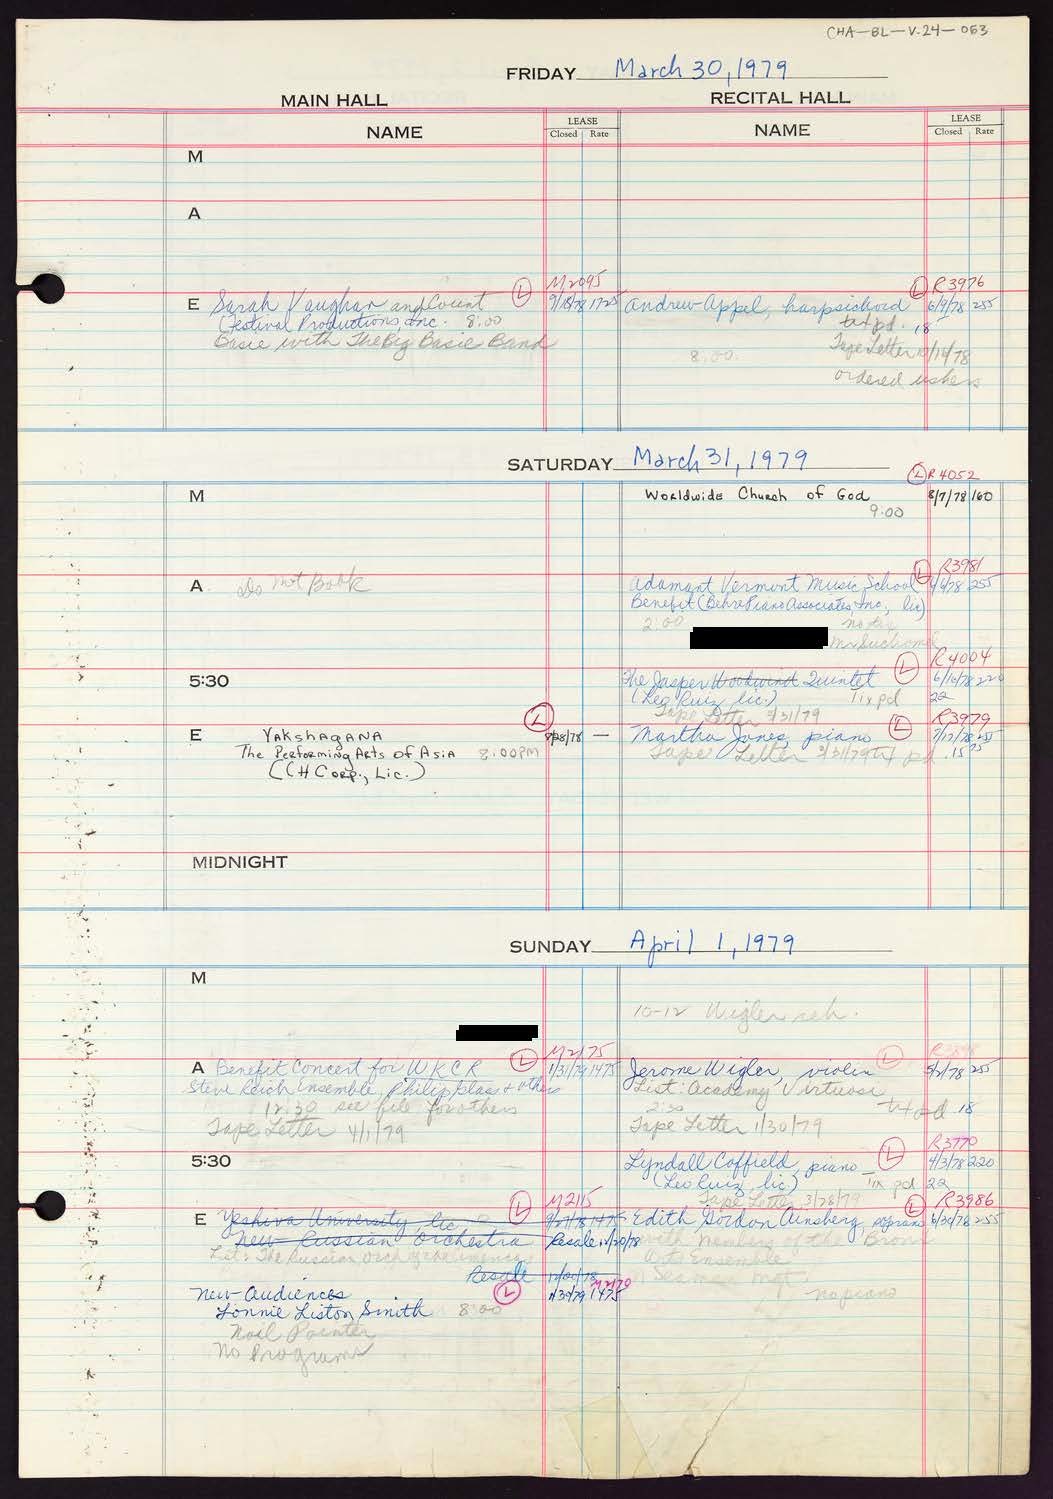 CHA-BL-V.24-053
FRIDAY March 30, 1979
MAIN HALL
RECITAL HALL
NAME
LEASE
Closed Rate
NAME
LEASE
Closed Rate
M
A
E Sarah Vaughan and Count
(Festival Productions, Inc. 8:00
Basie with The Big Basie Band
L M2095
9/18/78 1725
Andrew Appel, harpsichord
L R3976
6/9/78 255
tax pd. 18
Tape Letter 10/16/78
8:00
ordered ushers
SATURDAY March 31, 1979
M
Worldwide Church of God
9:00
L R4052
8/7/78 160
A Do Not Book
Adamant Vermont Music School
Benefit (Behre Piano Associates, Inc., lic)
2:00 notax
L R3981
6/6/78 255
5:30
The Jasper Woodwind Quintet
(Leo Ruiz, lic.) Tix pd
Tape Letter 3/31/79
L R4004
6/16/78 220
22
E YAKSHAGANA
The Performing Arts of Asia 8:00PM
(CH Corp., Lic.)
L
7/28/78 —
Martha Jones, piano
Tape Letter 3/31/79 tx pd .15 75
L R3979
7/17/78
MIDNIGHT
SUNDAY April 1, 1979
M
10-12 Wigler reh.
A Benefit Concert for WKCR
Steve Reich Ensemble, Philip Glass + others
12:30 see file for others
Tape Letter 4/1/79
L M2175
1/31/79 1475
Jerome Wigler, violin
List: Academy Virtuosi
2:30 tx pd 18
Tape Letter 1/30/79
L
5/2/78 255
5:30
Lyndall Coffield, piano
(Leo Ruiz, lic) Tix pd 22
Tape Letter 3/28/79
L R3770
4/3/78 220
E Yeshiva University lic.
New Russian Orchestra
L M2115
9/27/78 1475
Resale 12/20/78
Resale 12/20/78
New Audiences
Lonnie Liston Smith 8:00
Noil Pointer
No Programs
L M2170
1/30/79 1475
Edith Gordon Ainsberg, soprano
with members of the Bronx
Arts Ensemble
no piano
L R3986
6/20/78 255